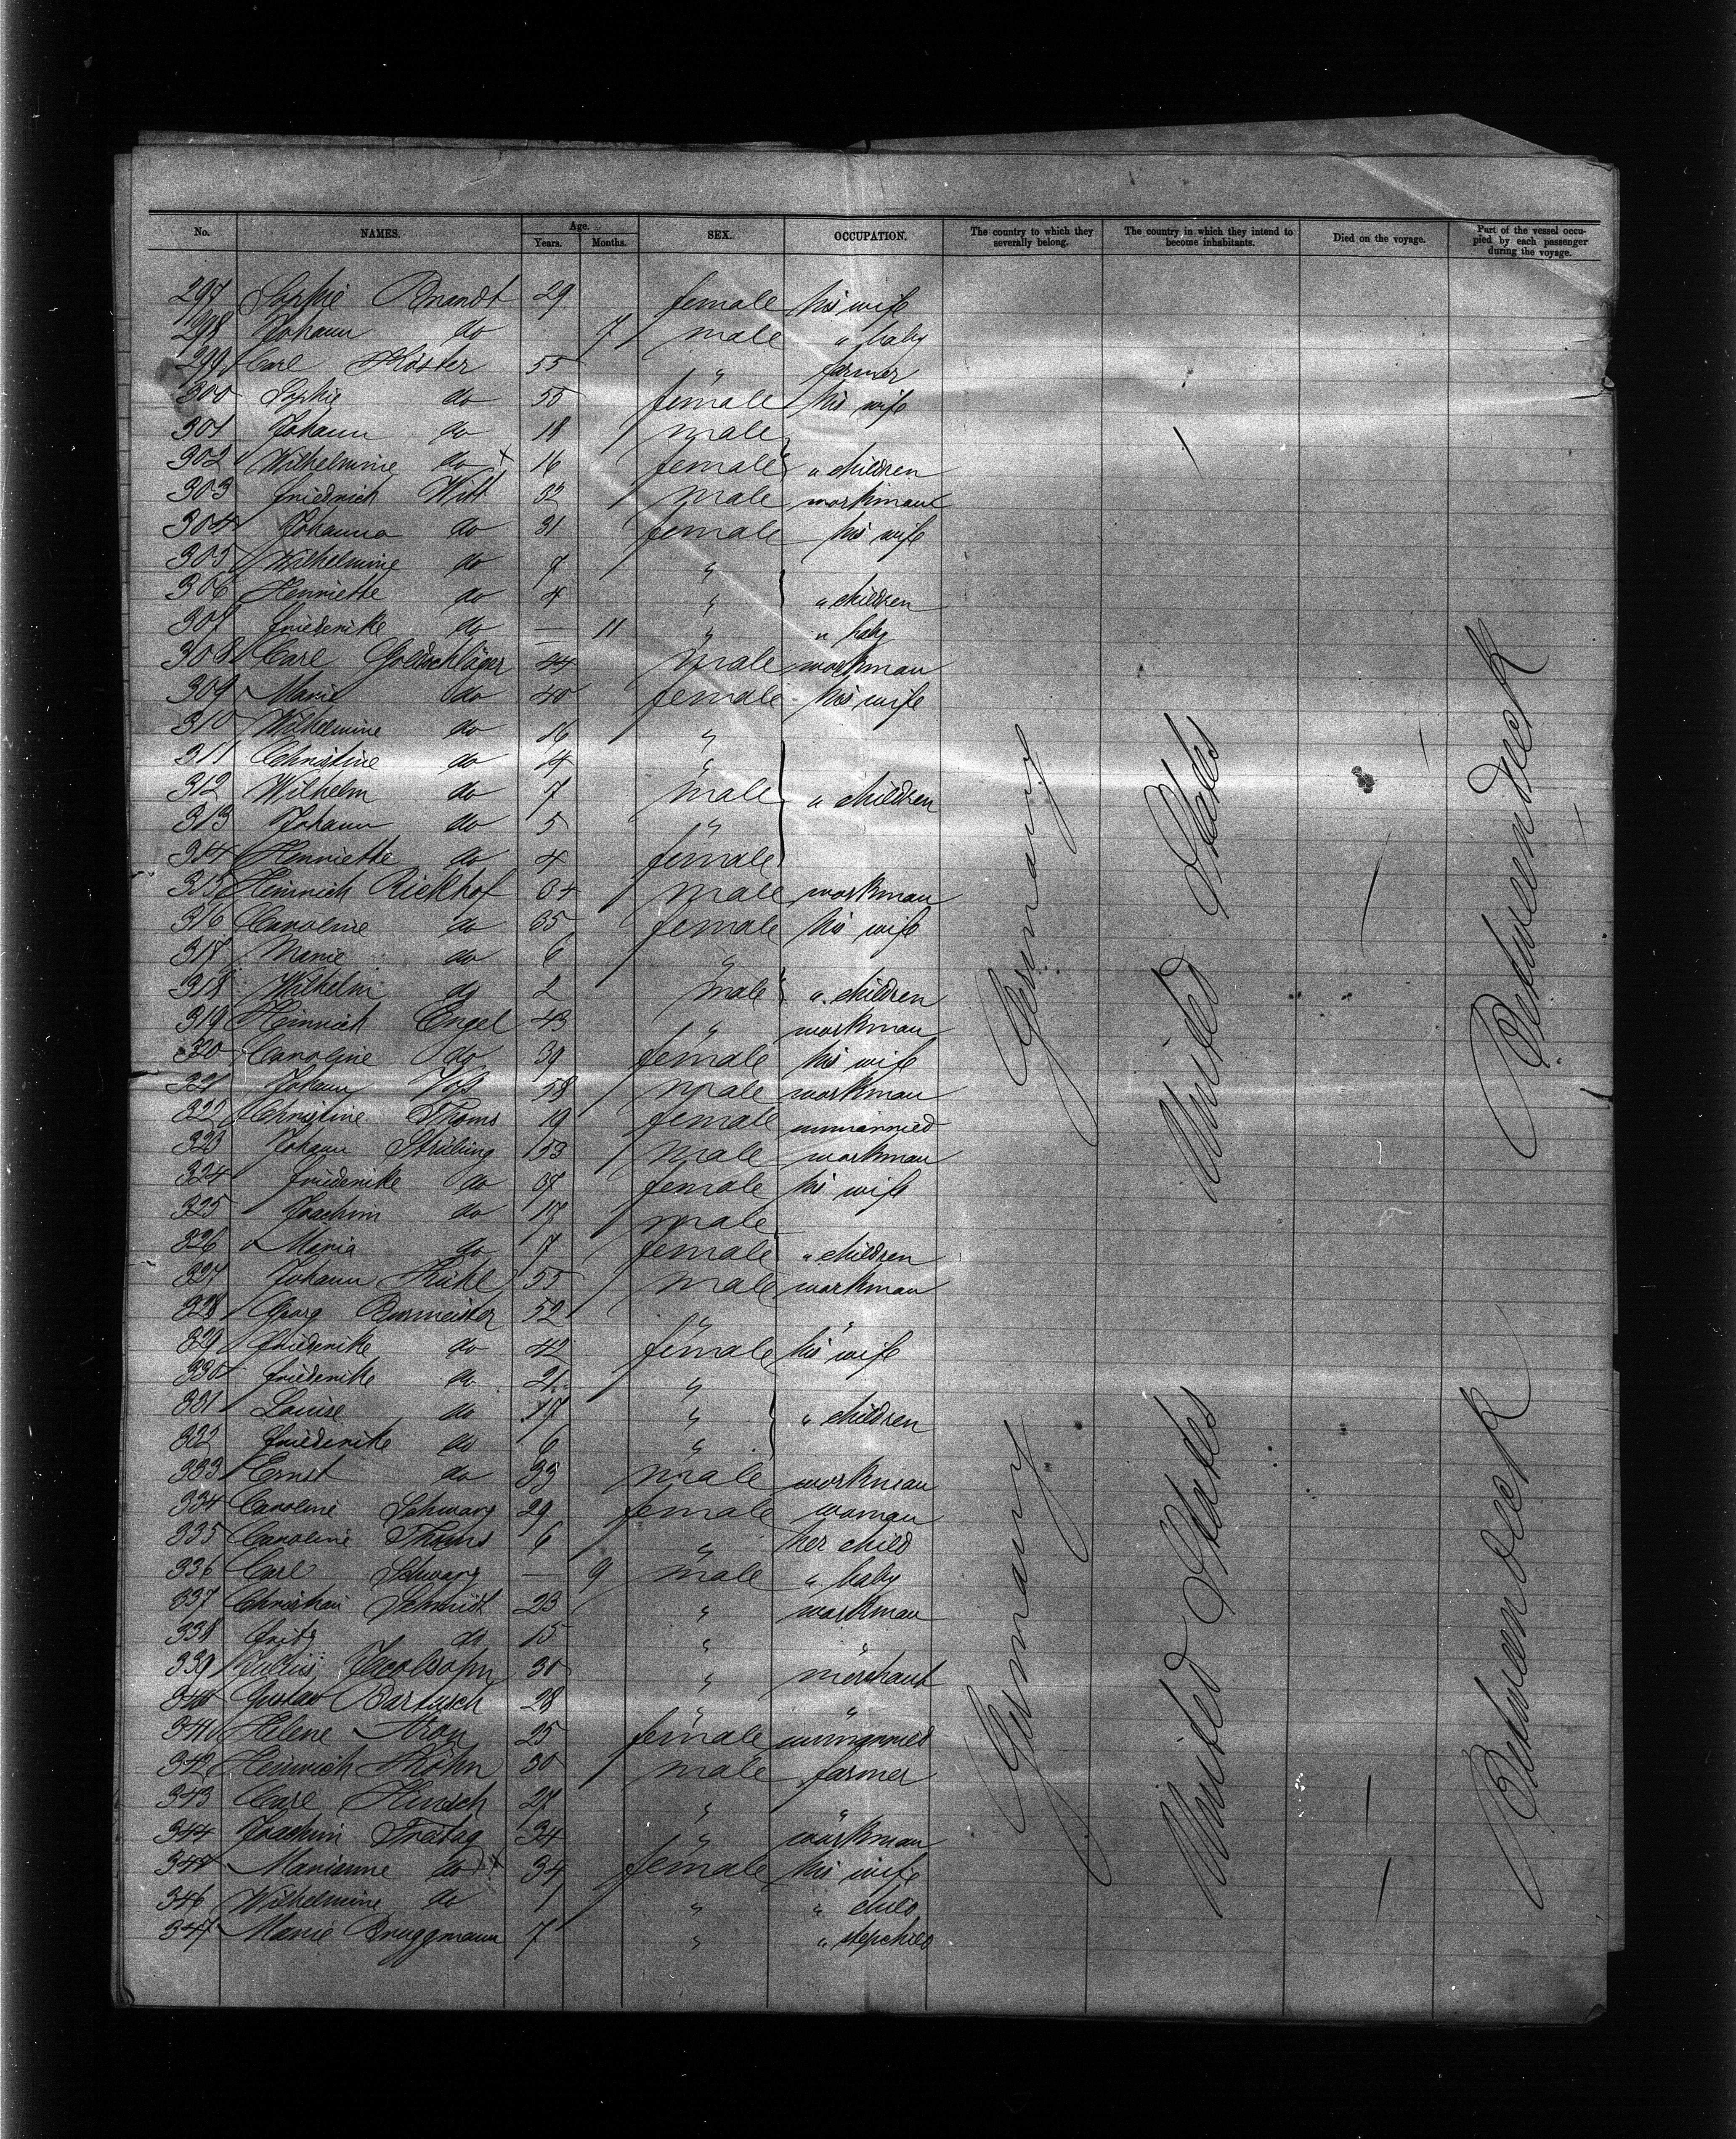 No. NAMES. Age. Years. Months. SEX. OCCUPATION. The country to which they severally belong. The country in which they intend to become inhabitants. Died on the voyage. Part of the vessel occupied by each passenger during the voyage.
297 Sophie Brandt 29 female his wife
298 Johann do 7 male " baby
299 Carl Köster 55 " farmer
300 Sophie do 55 female his wife
301 Johann do 18 male
302 Wilhelmine do x 16 female " children
303 Friedrich Witt 32 male workman
304 Johanna do 31 female his wife
305 Wilhelmine do 7 "
306 Henriette do 4 " " children
307 Friederike do — 11 " " baby
308 Carl Goldschläger 44 male workman
309 Marie do 40 female his wife
310 Wilhelmine do 16 "
311 Christine do 14 "
312 Wilhelm do 7 male " children
313 Johann do 5 "
314 Henriette do 4 female
315 Heinrich Rickhof 34 male workman
316 Caroline do 35 female his wife
317 Marie do 6 "
318 Wilhelm do 2 male " children
319 Heinrich Engel 43 " workman
320 Caroline do 39 female his wife
321 Johann Voß 58 male workman
322 Christine Thoms 19 female unmarried
323 Johann Strübing 53 male workman
324 Friederike do 37 female his wife
325 Joachim do 17 male
326 Maria do 7 female " children
327 Johann Kühl 55 male workman
328 Georg Burmeister 52 " "
329 Friederike do 42 female his wife
330 Friederike do 21 "
331 Louise do 17 " " children
332 Friederike do 6 "
333 Ernst do 33 male workman
334 Caroline Schwarz 29 female woman
335 Caroline Thoms 6 " her child
336 Carl Schwarz — 9 male " baby
337 Christian Schmidt 23 " workman
338 Fritz do 15 " "
339 Julius Jacobsohn 30 " merchant
340 Gustav Bartusch 28 " "
341 Helene Aron 25 female unmarried
342 Heinrich Kohn 30 male farmer
343 Carl Hinsch 27 " "
344 Joachim Freitag 34 " workman
345 Marianne do x 34 female his wife
346 Wilhelmine do 1 " " child
347 Marie Bruggmann 7 " " stepchild
Germany United States Betweendeck
Germany United States Betweendeck